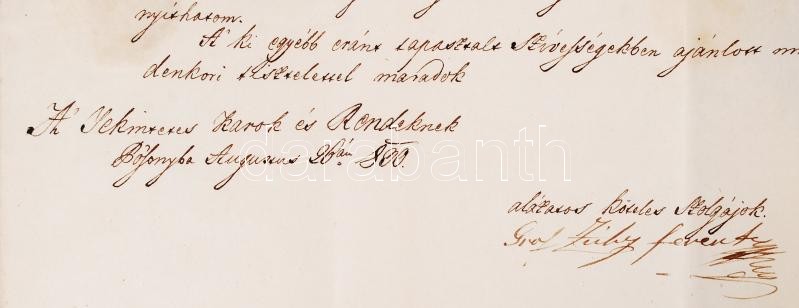 nyithatom.
A' ki egyébb eránt tapasztalt Szívességekben ajánlott min
denkori tisztelettel maradok
A' Tekintetes Karok és Rendeknek
Posonyba Augusztus 26án
alázatos köteles Szolgájok.
Grof Zichy Ferentz
darabanth